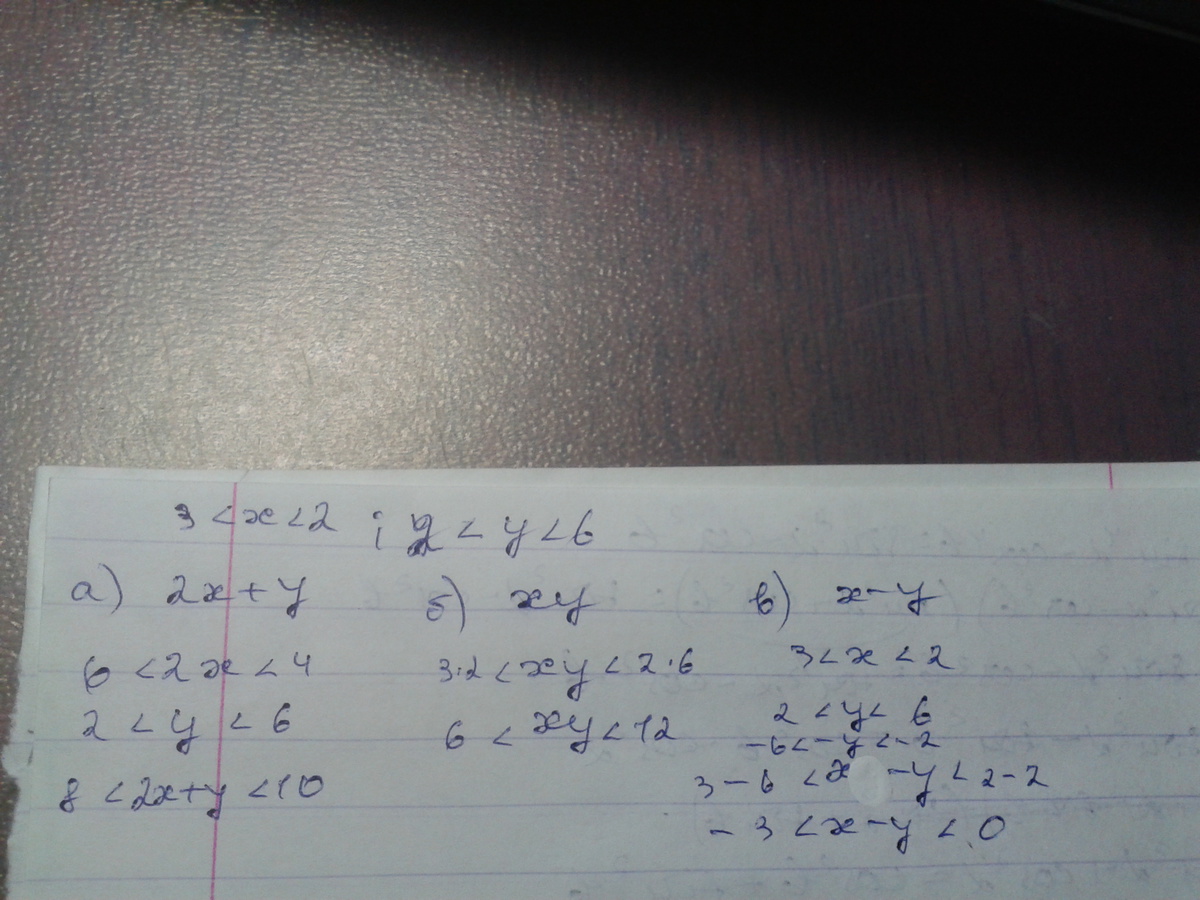 3 < x < 2 ; 2 < y < 6
а) 2x + y
6 < 2x < 4
2 < y < 6
8 < 2x+y < 10
б) xy
3·2 < xy < 2·6
6 < xy < 12
в) x - y
3 < x < 2
2 < y < 6
-6 < -y < -2
3 - 6 < x - y < 2 - 2
-3 < x - y < 0